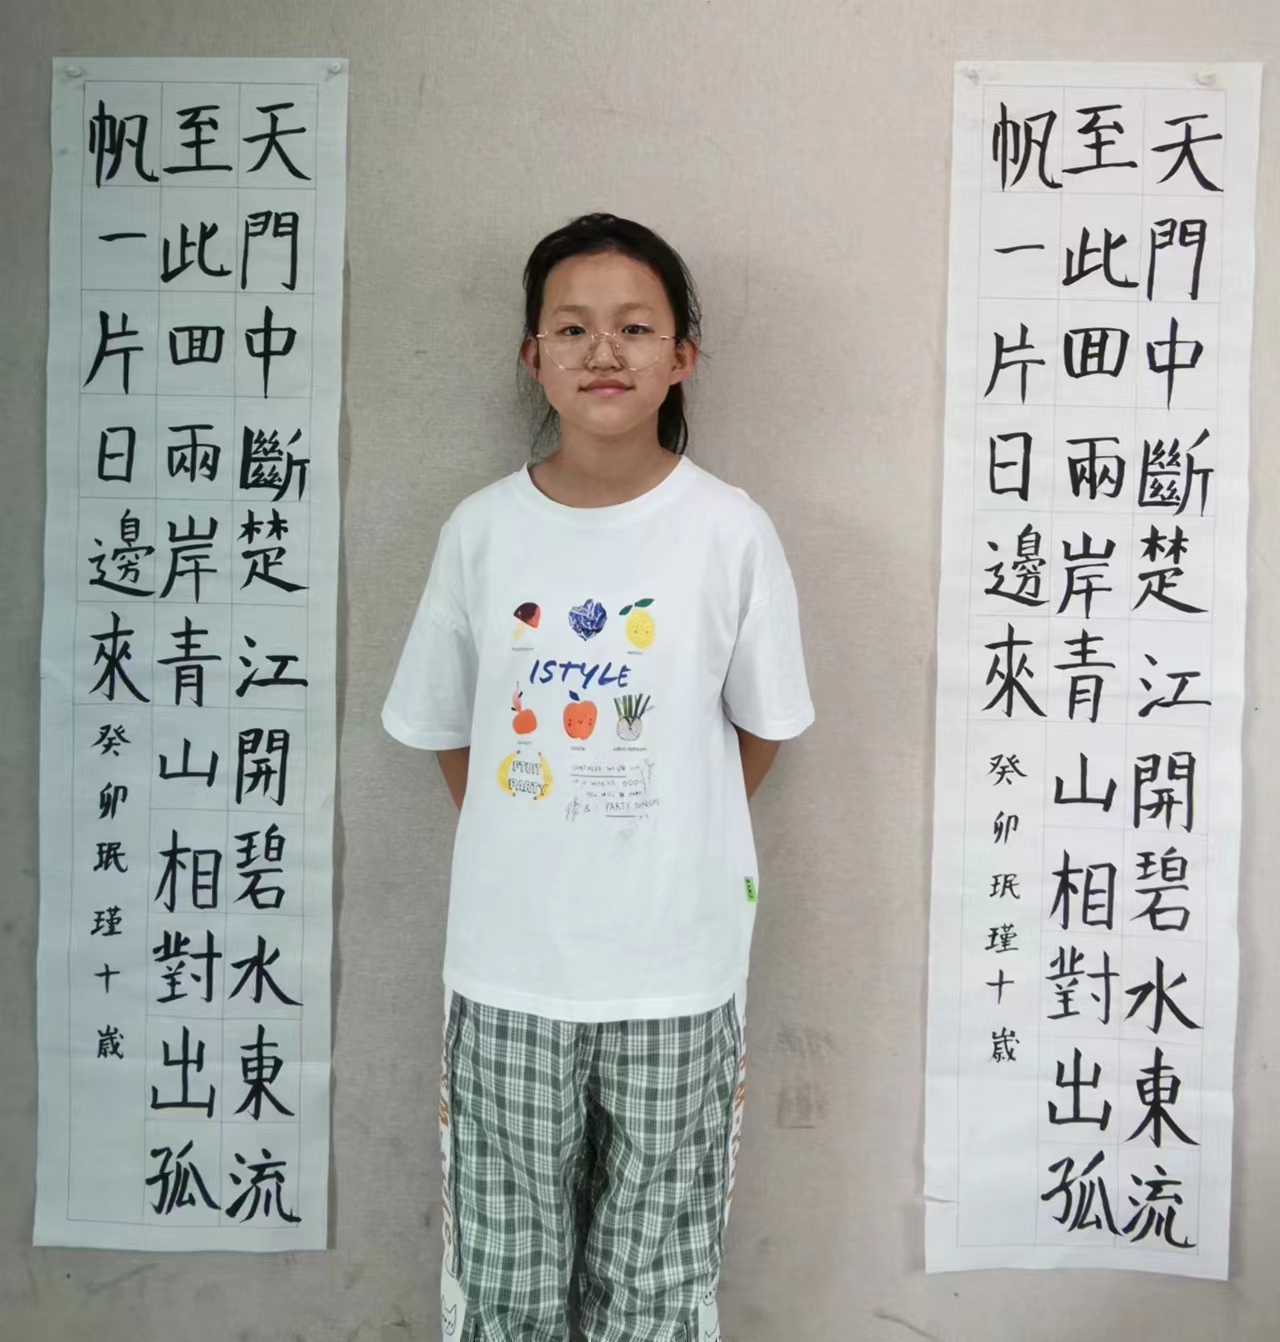 天門中斷楚江開碧水東流
至此回兩岸青山相對出孤
帆一片日邊來
癸卯珉瑾十歲
ISTYLE
FRUIT
PARTY
天門中斷楚江開碧水東流
至此回兩岸青山相對出孤
帆一片日邊來
癸卯珉瑾十歲